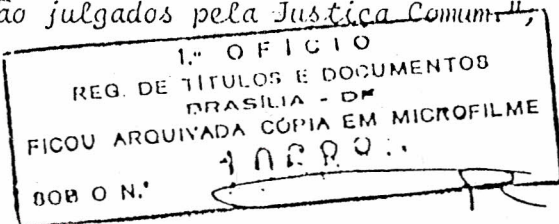 ão julgados pela Justiça Comum.",
1.º OFICIO
REG. DE TÍTULOS E DOCUMENTOS
BRASÍLIA - DF
FICOU ARQUIVADA CÓPIA EM MICROFILME
SOB O N.º